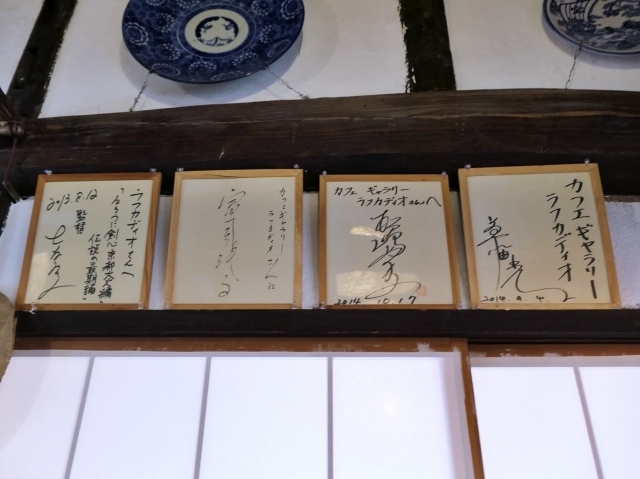 ラフカディオさんへ
「るろうに剣心 京都大火編
伝説の最期編」
監督
2013. 8. 12
カフェギャラリー
ラフカディオさんに
カフェ ギャラリー
ラフカディオさんへ
2014 10 17
カフェ ギャラリー
ラフカディオ
2014. 9. 4